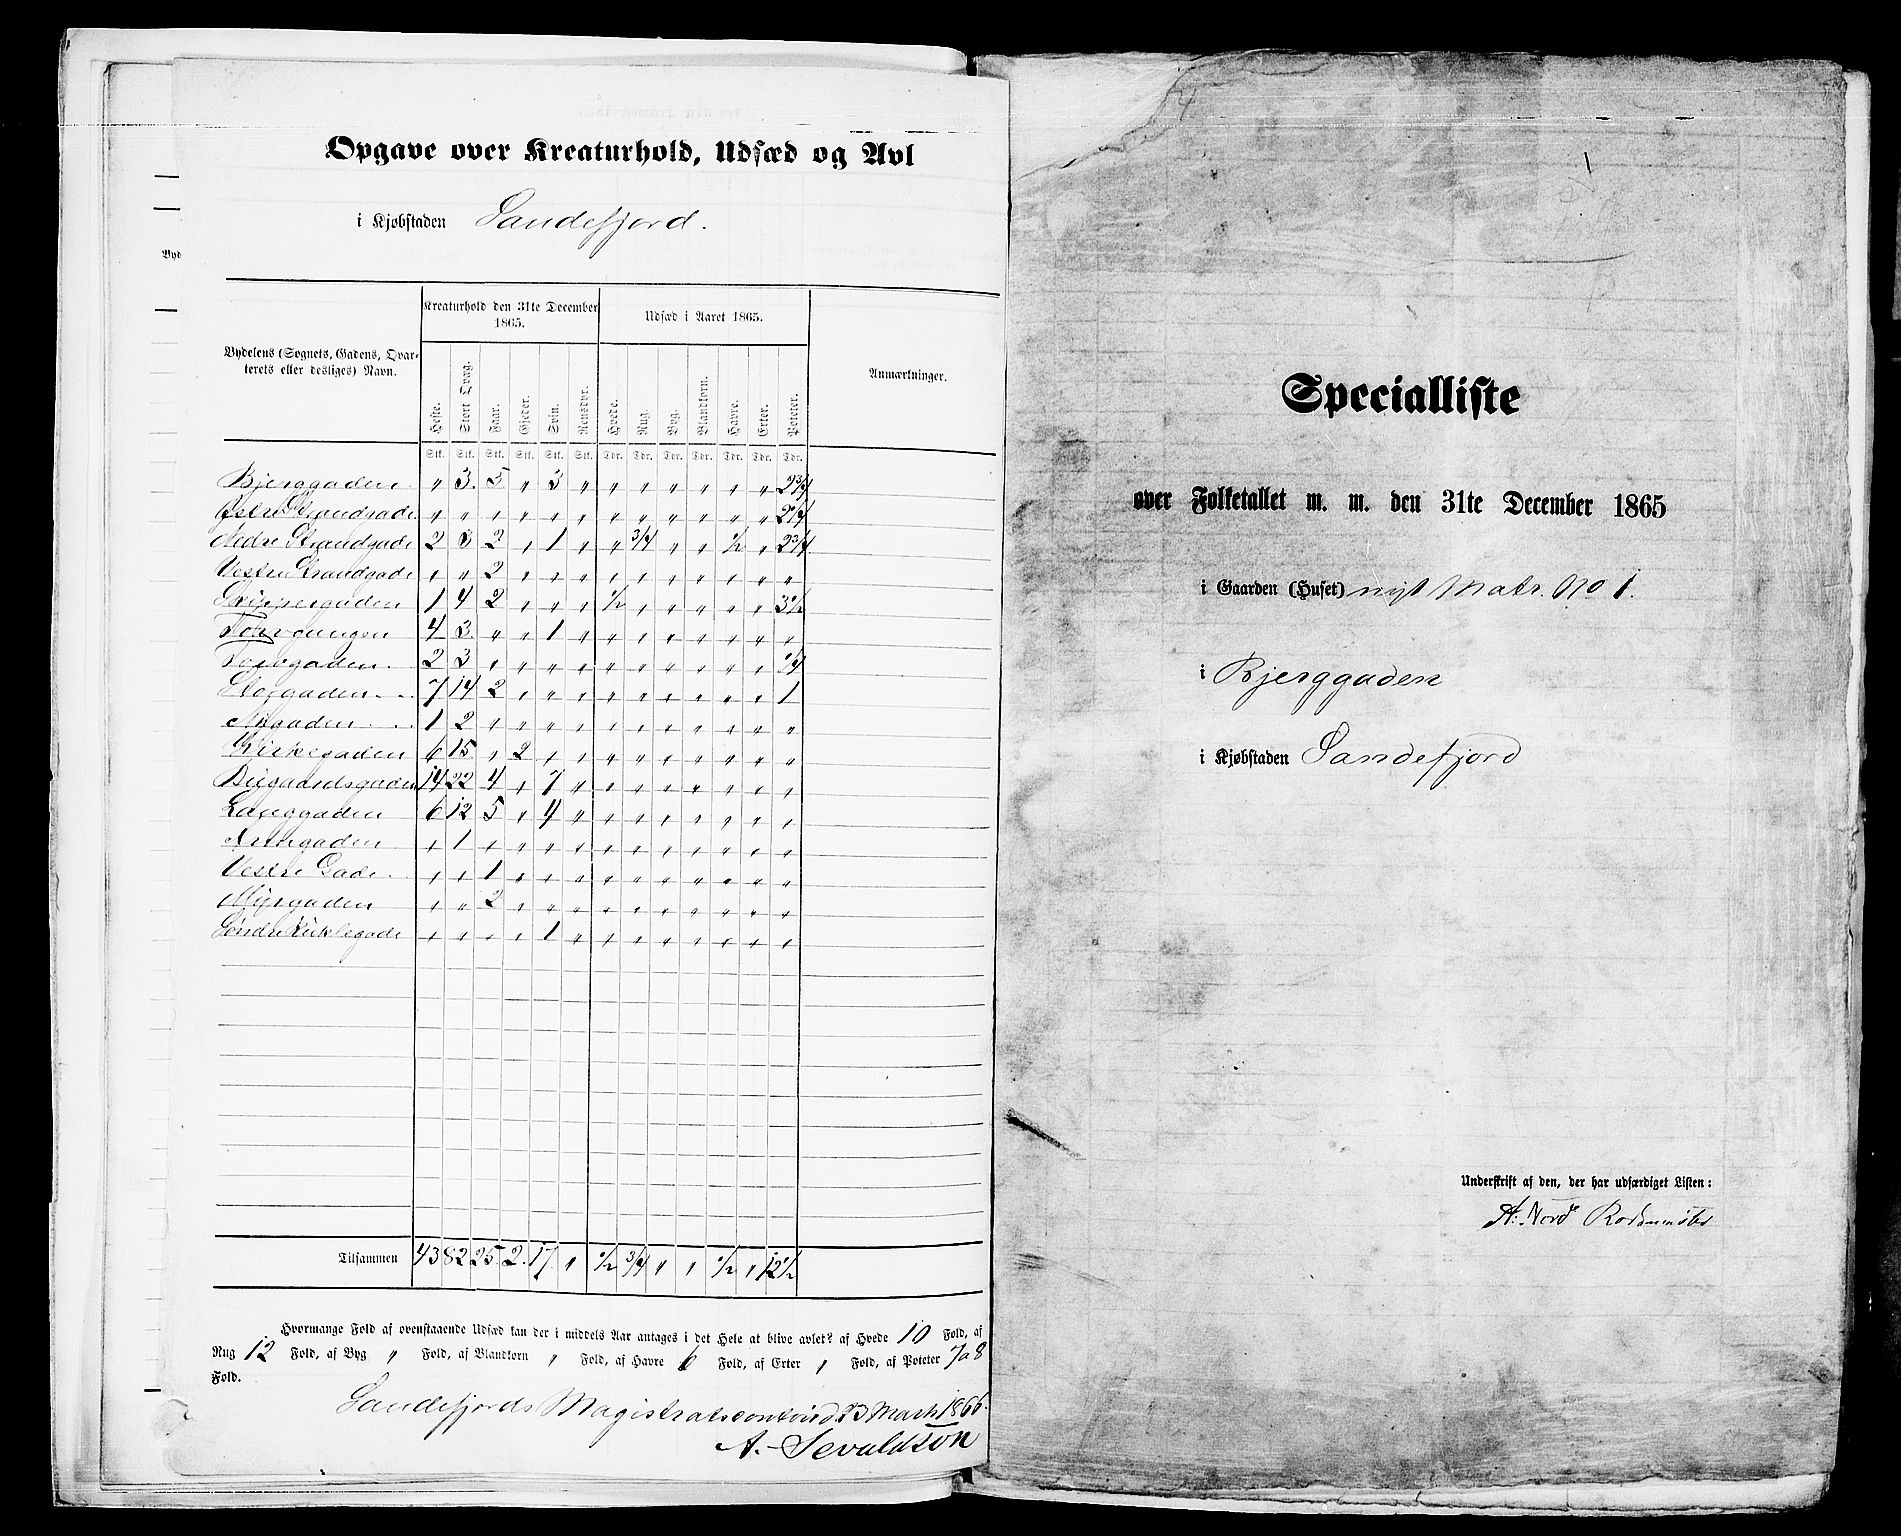 Byd
Opgave over Kreaturhold, Udsæd og Avl
i Kjøbstaden Sandefjord.
Bydelens (Sognets, Gadens, Qvar-
terets eller desliges) Navn.
Kreaturhold den 31te December
1865.
Udsæd i Aaret 1865.
Anmærkninger.
Heste. Stort Qvæg. Faar. Gjeder. Svin. Rensdyr. Hvede. Rug. Byg. Blandkorn. Havre. Erter. Poteter.
Stk. Stk. Stk. Stk. Stk. Stk. Tdr. Tdr. Tdr. Tdr. Tdr. Tdr. Tdr.
Bjerggaden. " 3. 5 " 3 " " " " " " " 2 3/4
Østre Strandgade. " " " " " " " " " " " "
Nedre Strandgade 2 3 2 " 1 " " 3/4 " " 1/2 " 2 3/4
Vestre Strandgade " " 2 " " " " " " " " " "
Skippergaden 1 4 2 " " " 1/2 " " " " " 3 1/2
4 3. " " 1 " " " " " " " "
Torvgaden. 2 3 " " " " " " " " " "
Storgaden 7 14 2 " " " " " " " " " 1
Aagaden 1 2 " " " " " " " " " " "
Kirkegaden 6 15 " 2 " " " " " " " " "
Biegaardsgaden 14 22 4 " 7 " " " " " " " "
Langgaden 6 12 5 " 4 " " " " " " " "
" 1 " " " " " " " " " " "
Vestre Gade " " 1 " " " " " " " " " "
Myrgaden " " 2 " " " " " " " " " "
Søndre Kirkegade " " " " 1 " " " " " " " "
Tilsammen 43 82 25. 2. 17. " 1/2 3/4 " " 1/2 " 12 1/2
Hvormange Fold af ovenstaaende Udsæd kan der i middels Aar antages i det Hele at blive avlet? af Hvede 10 Fold, af
Rug 12 Fold, af Byg " Fold, af Blandkorn " Fold, af Havre 6 Fold, af Erter " Fold, af Poteter 7 a 8
Fold.
Sandefjords Magistratscontoir d 23 Marts 1866.
A. Sevaldson
Specialliste
over Folketallet m. m. den 31te December 1865
i Gaarden (Huset) nyt Matr. No 1.
i Bjerggaden
i Kjøbstaden Sandefjord
Underskrift af den, der har udfærdiget Listen:
A. Nord